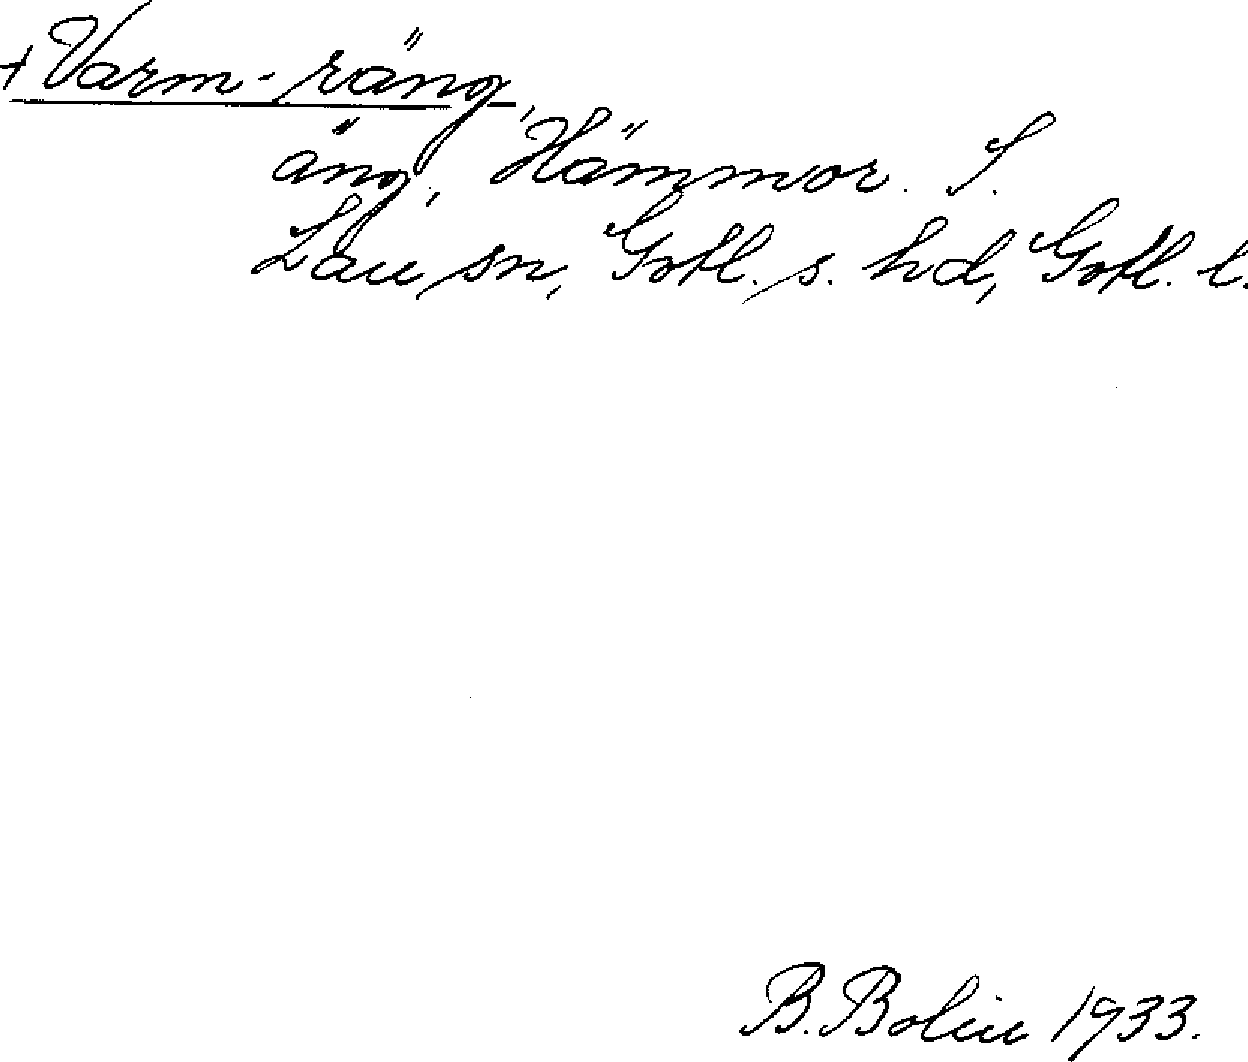 +Varm-räng,
äng, Hämmor. S.
Lau sn, Gotl. s. hd, Gotl. l.
B. Bolin 1933.